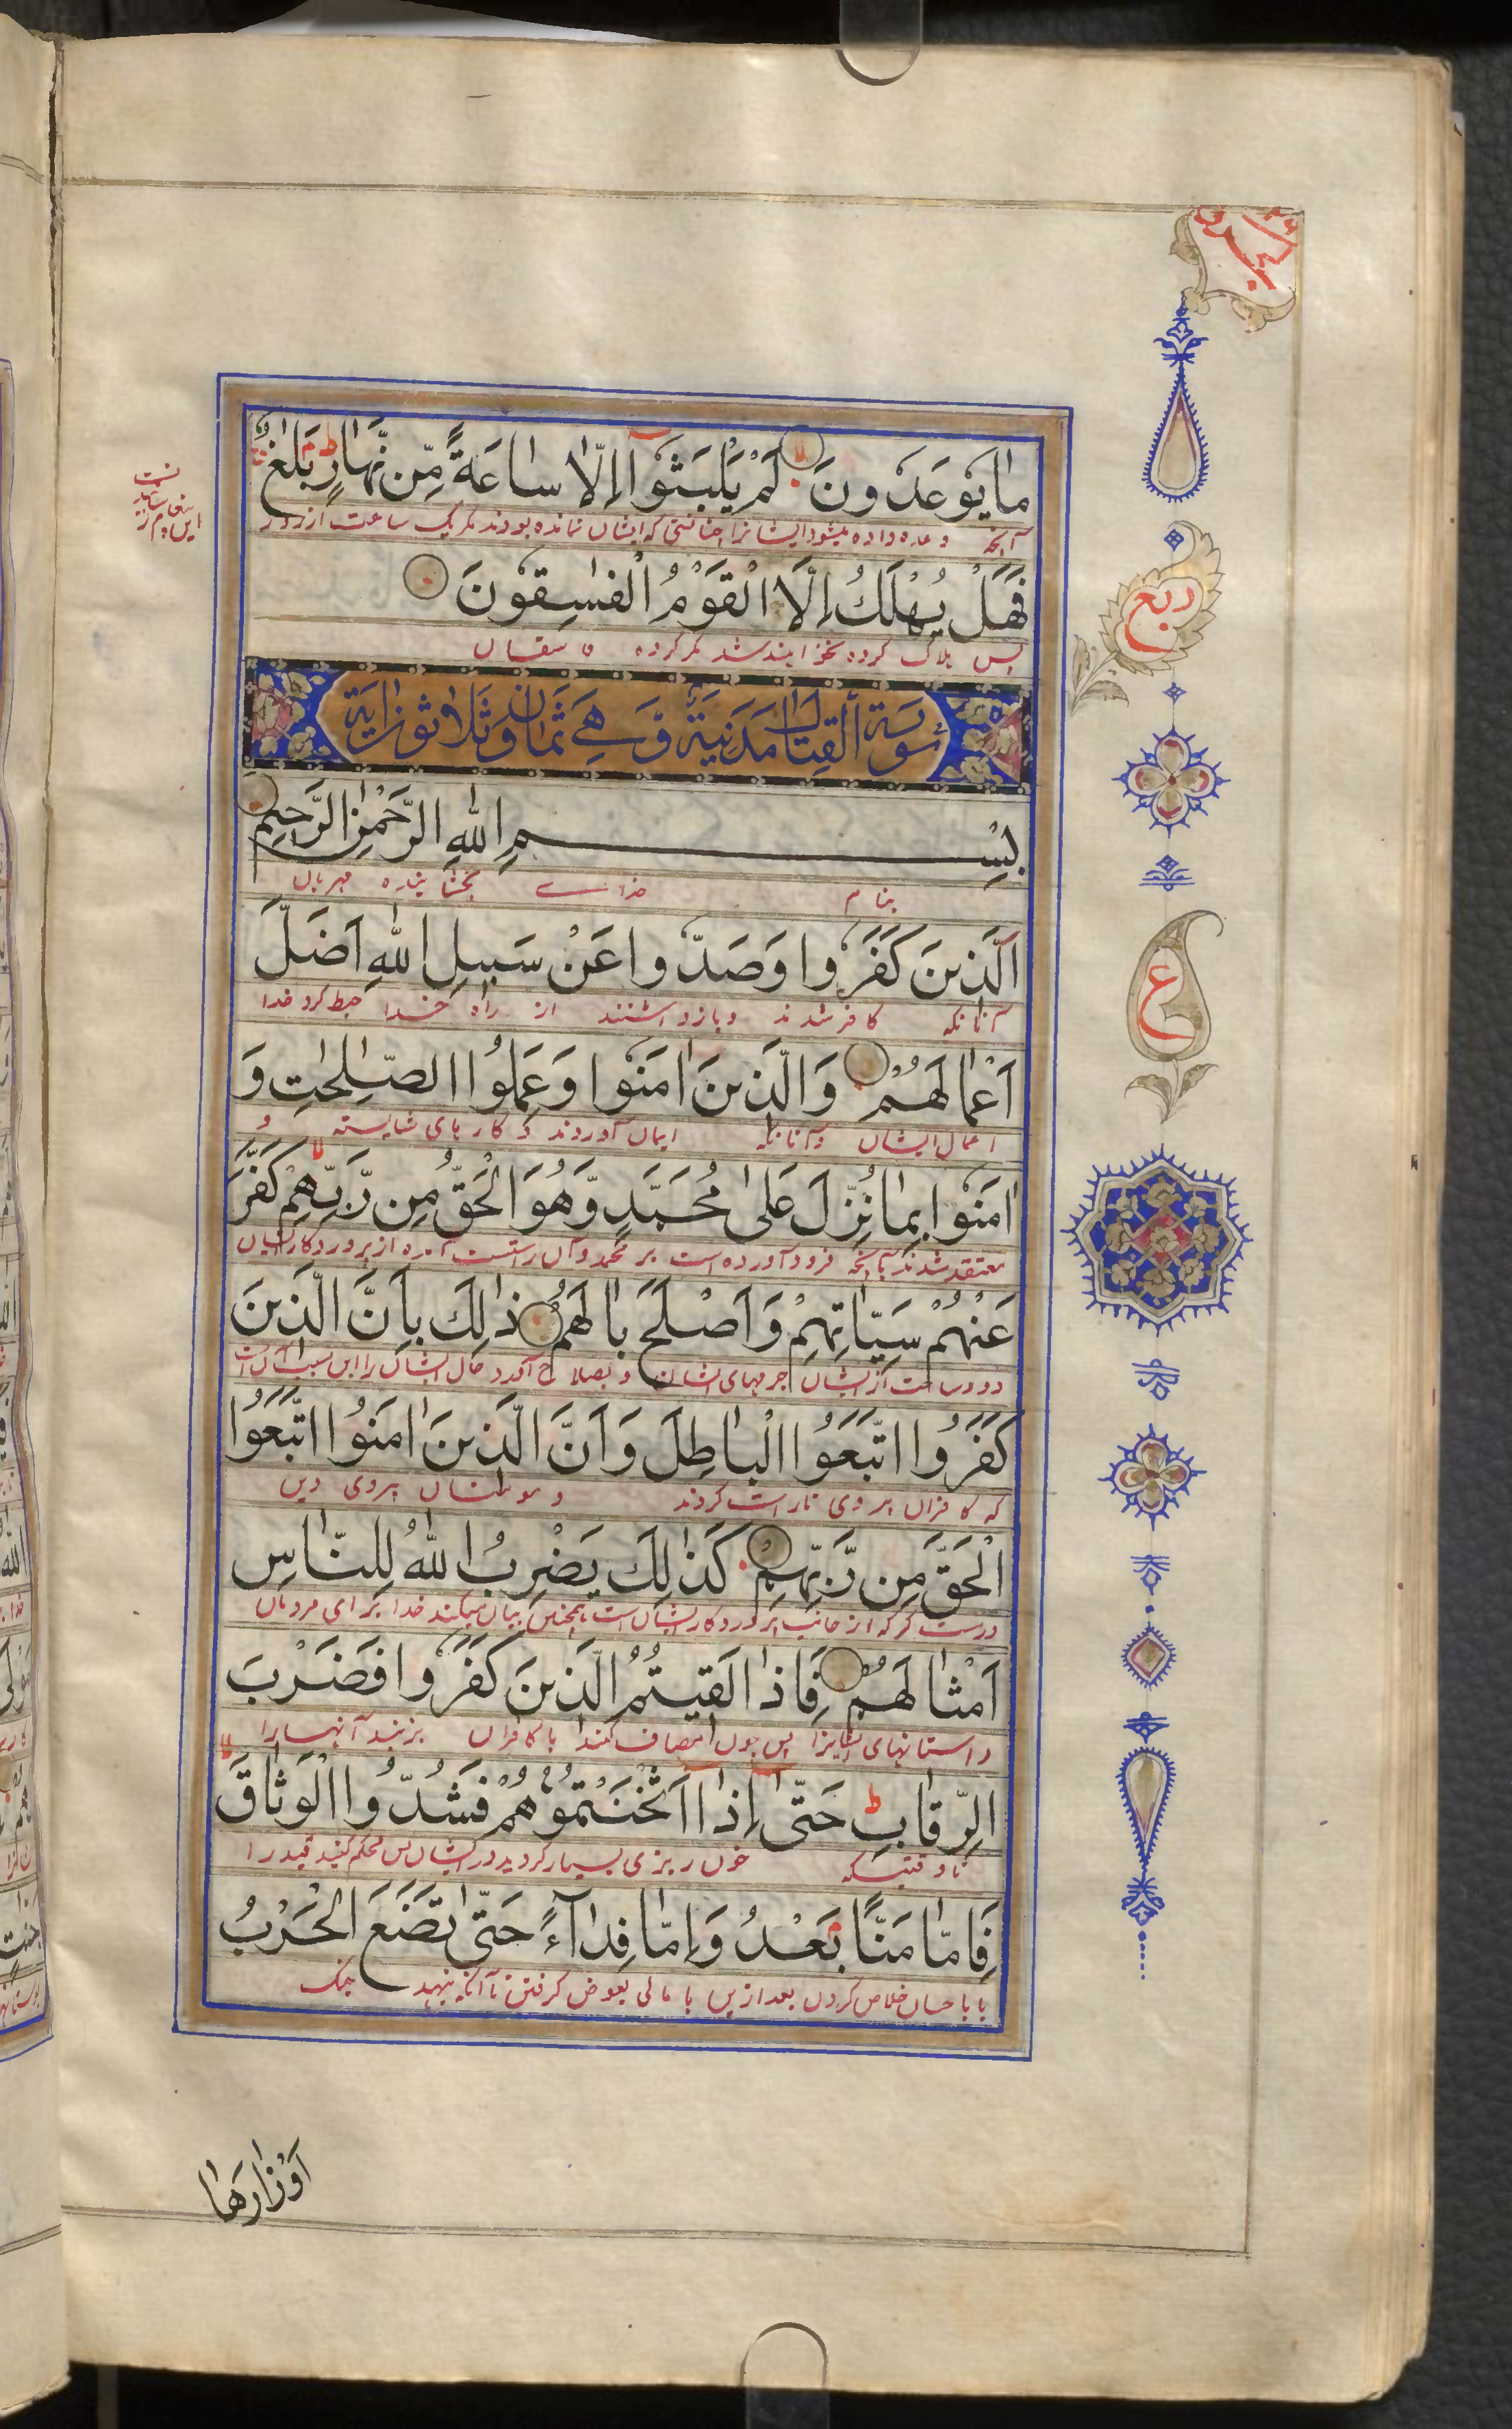 ما يوعدون لم يلبثوا الا ساعة من نهار بلغ
آنچه وعده داده میشود ایشانرا نمانده بودند مگر یک ساعت از روز
فهل يهلك الا القوم الفسقون
پس هلاک کرده نخواهند شد مگر گروه فاسقان
سورة القتال مدنية وهي ثمان وثلاثون اية
بسم الله الرحمن الرحيم
بنام خدای بخشاینده مهربان
الذين كفروا وصدوا عن سبيل الله اضل
آنانکه کافر شدند و بازداشتند از راه خدا حبط کرد خدا
اعمالهم والذين امنوا وعملوا الصلحت و
اعمال ایشان و آنانکه ایمان آوردند و کارهای شایسته و
امنوا بما نزل على محمد وهو الحق من ربهم كفر
معتقد شدند بآنچه فرود آورده است بر محمد و آن راستست آمده از پروردگار ایشان
عنهم سياتهم واصلح بالهم ذلك بان الذين
دور ساخت از ایشان جرمهای ایشان و بصلاح آورد حال ایشان را این بسبب آنست
كفروا اتبعوا الباطل وان الذين امنوا اتبعوا
که کافران پیروی ناراست کردند و مومنان پیروی دین
الحق من ربهم كذلك يضرب الله للناس
درست که از جانب پروردگار ایشان است همچنین بیان میکند خدا برای مردمان
امثالهم فاذا لقيتم الذين كفروا فضرب
داستانهای ایشانرا پس چون مصاف کنید با کافران بزنید آنها را
الرقاب حتى اذا اثخنتموهم فشدوا الوثاق
تا وقتیکه خون ریزی بسیار کردید در ایشان پس محکم کنید قید را
فاما منا بعد واما فداء حتى تضع الحرب
یا باحسان خلاص کردن بعد ازین یا مالی بعوض گرفتن تا آنکه بنهد جنگ
اوزارها
ربع
ع